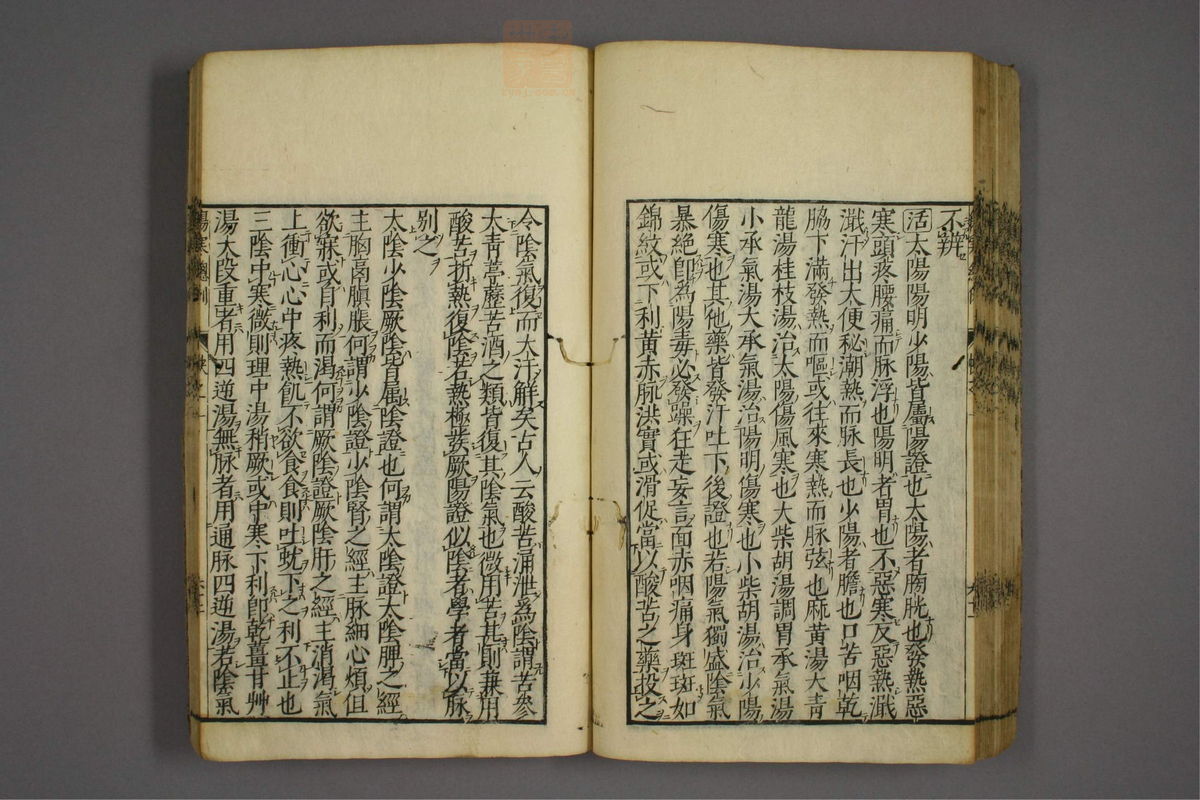 不辨
活太陽陽明少陽皆屬陽證也太陽者膀胱也發熱惡
寒頭疼腰痛而脉浮也陽明者胃也不惡寒反惡熱濈
濈汗出大便秘潮熱而脉長也少陽者膽也口苦咽乾
脇下滿發熱而嘔或往來寒熱而脉弦也麻黄湯大青
龍湯桂枝湯治太陽傷風寒也大柴胡湯調胃承氣湯
小承氣湯大承氣湯治陽明傷寒也小柴胡湯治少陽
傷寒也其他藥皆發汗吐下後證也若陽氣獨盛陰氣
暴絶即爲陽毒必發躁狂走妄言面赤咽痛身斑斑如
錦紋或下利黄赤脉洪實或滑促當以酸苦之藥投之
令陰氣復而大汗解矣古人云酸苦涌泄爲陰謂苦參
大青葶藶苦酒之類皆復其陰氣也微用苦其則兼用
酸苦折熱復陰若熱極發厥陽證似陰者學者當以脉
别之
太陰少陰厥陰皆屬陰證也何謂太陰證太陰脾之經
主胸膈䐜脹何謂少陰證少陰腎之經主脉細心煩但
欲寐或自利而渴何謂厥陰證厥陰肝之經主消渴氣
上衝心心中疼熱飢不欲食食則吐蚘下之利不止也
三陰中寒微則理中湯稍厥或中寒下利即乾薑甘艸
湯大段重者用四逆湯無脉者用通脉四逆湯若陰氣
傷寒總例